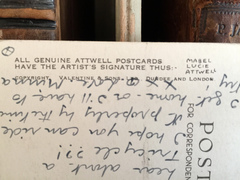 ALL GENUINE ATTWELL POSTCARDS
HAVE THE ARTIST'S SIGNATURE THUS:-
MABEL
LUCIE
ATTWELL
COPYRIGHT. VALENTINE & SONS, LTD. DUNDEE AND LONDON
POST
FOR CORRESPONDEN
hear about a
Tricycle ??!
I hope you can ride
it properly by the time
I get home - or I'll have to
try
x x love